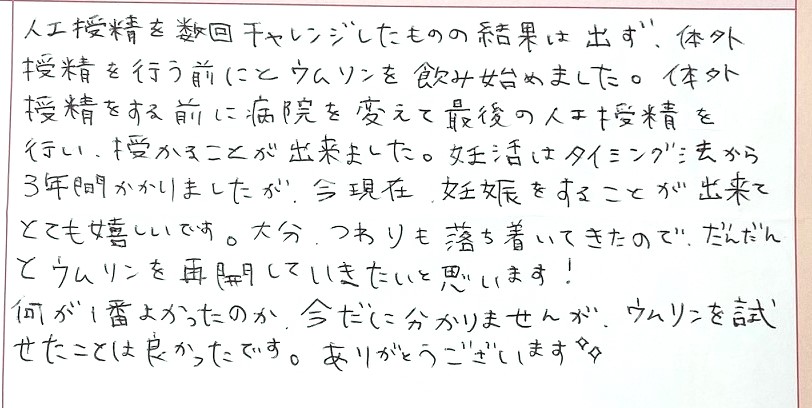 人工授精を数回チャレンジしたものの結果は出ず、体外
授精を行う前にとウムリンを飲み始めました。体外
授精をする前に病院を変えて最後の人工授精を
行い、授かることが出来ました。妊活はタイミング法から
3年間かかりましたが、今現在、妊娠をすることが出来て
とても嬉しいです。大分、つわりも落ち着いてきたので、だんだん
とウムリンを再開していきたいと思います!
何が1番よかったのか、今だに分かりませんが、ウムリンを試
せたことは良かったです。ありがとうございます✧✧